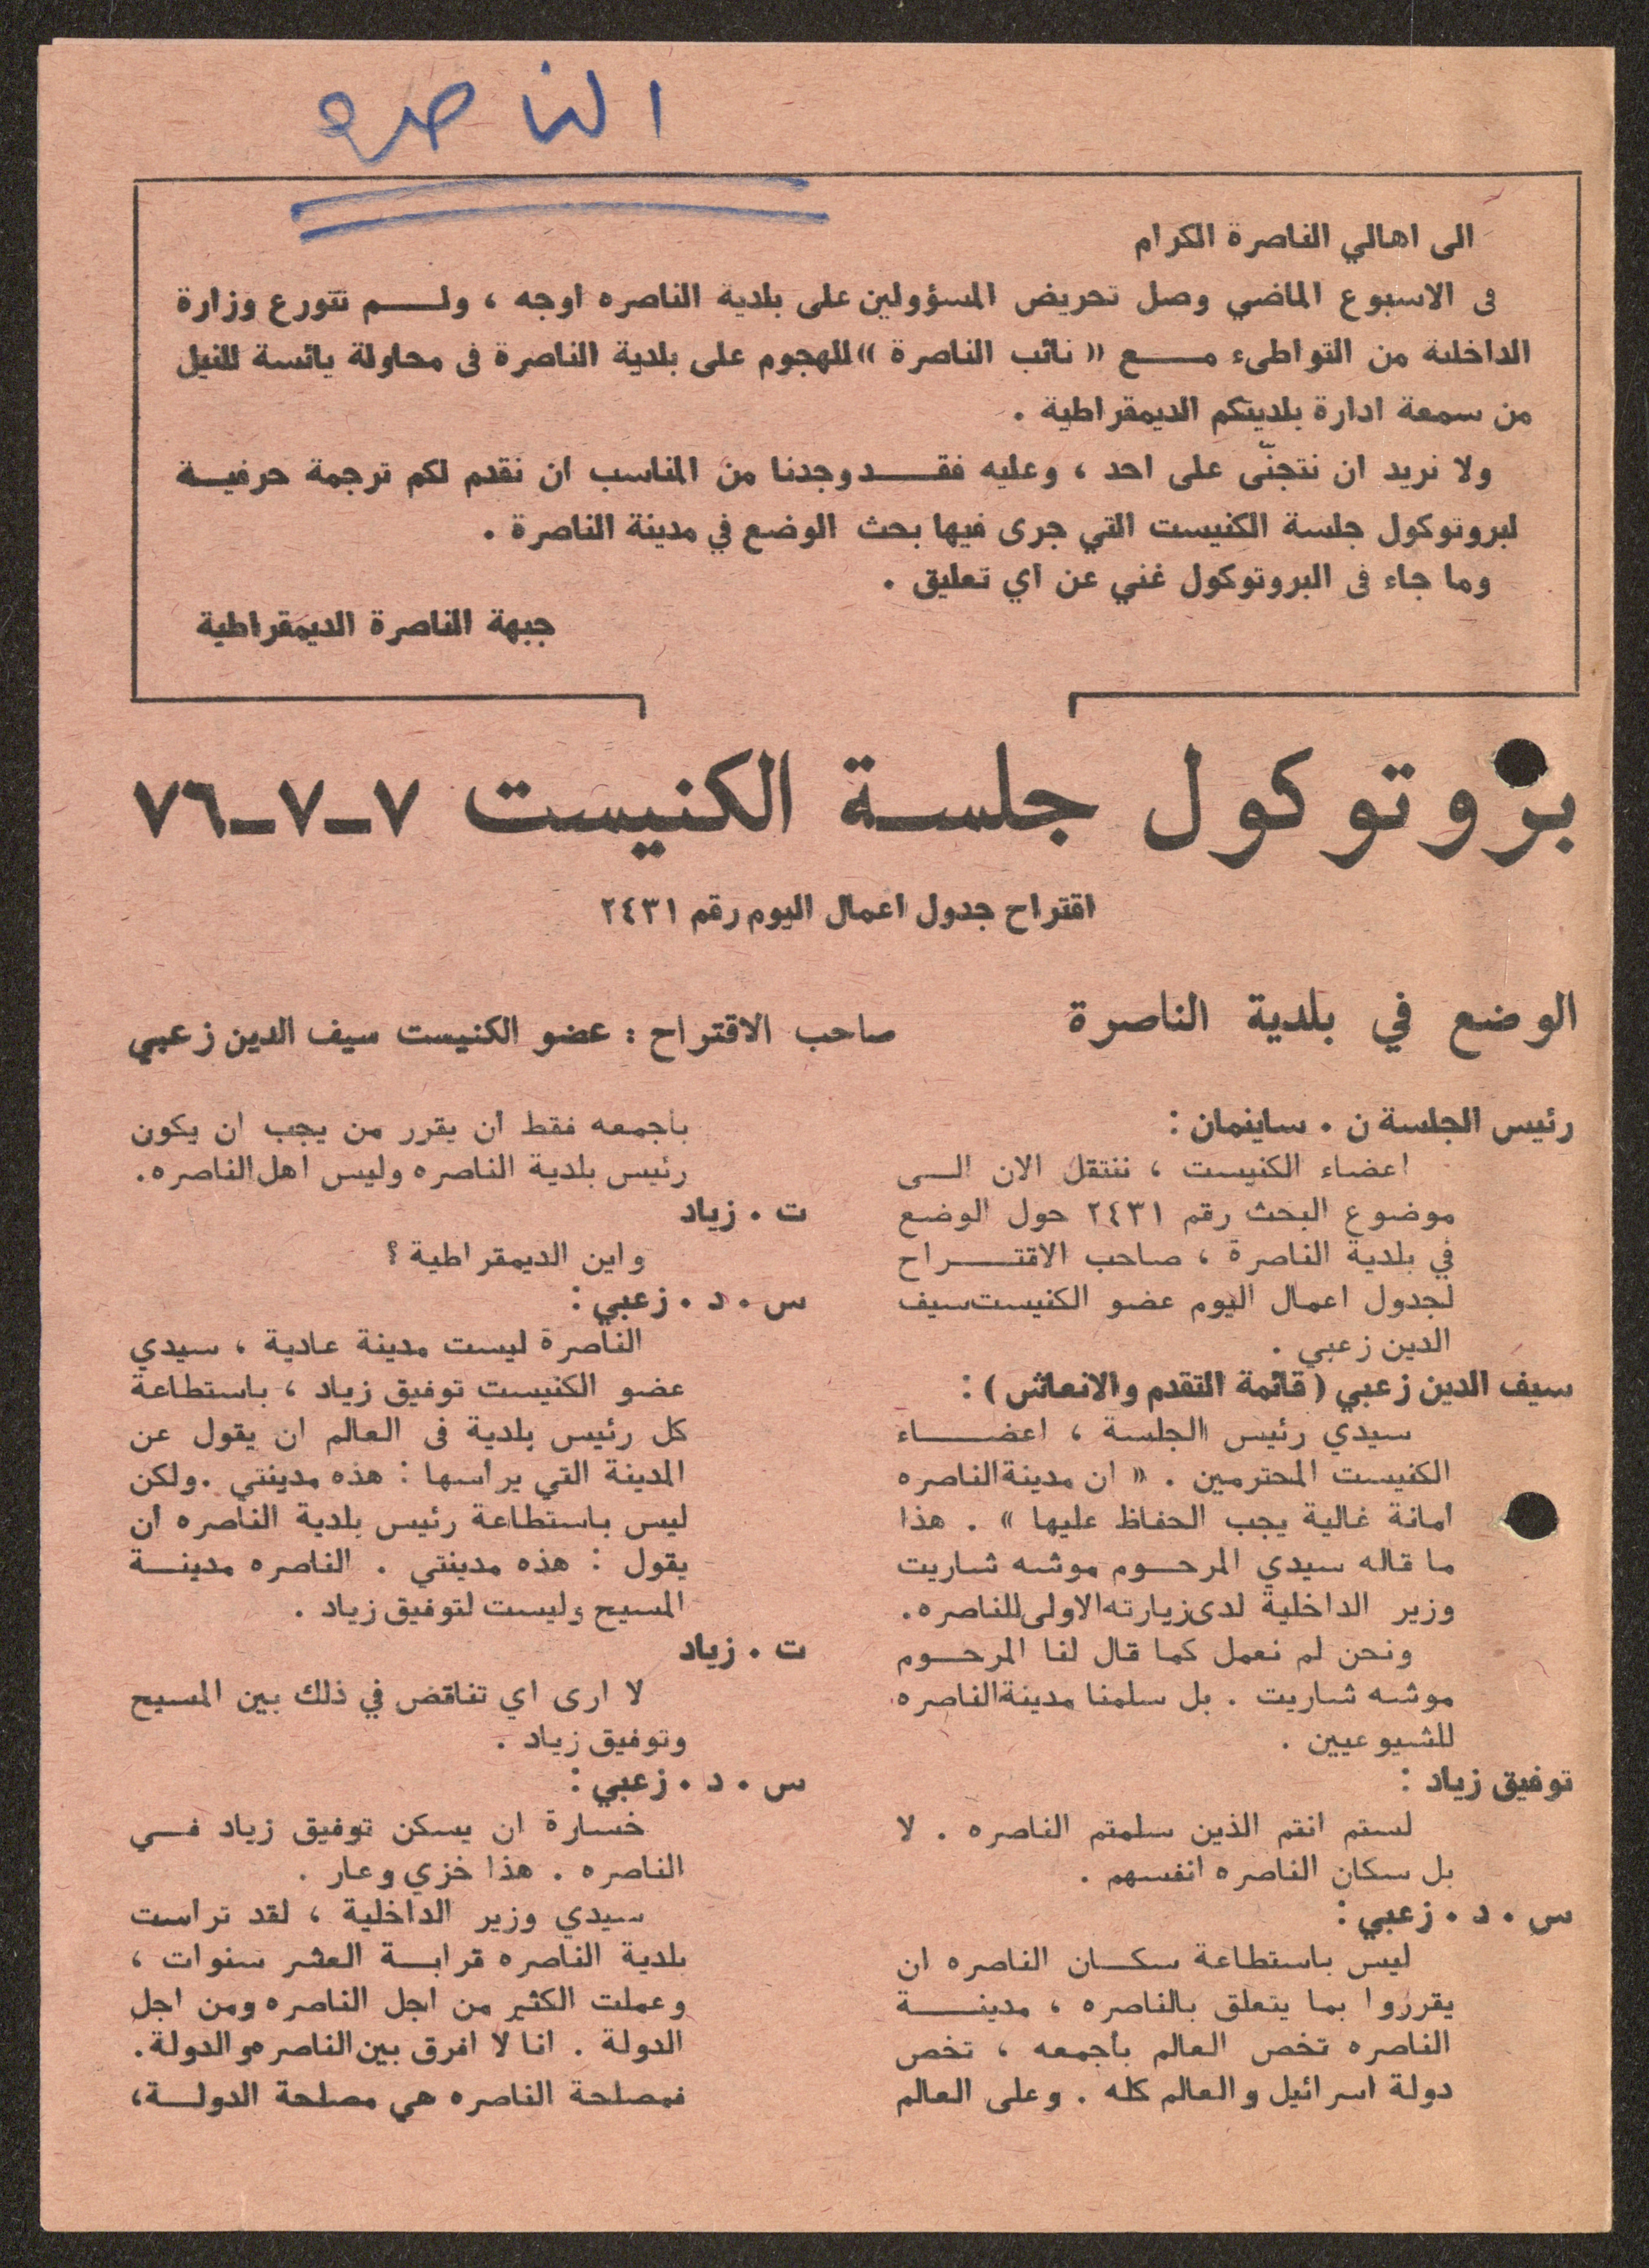 الناصره
الى اهالي الناصرة الكرام
فى الاسبوع الماضي وصل تحريض المسؤولين على بلدية الناصره اوجه ، ولم تتورع وزارة
الداخلية من التواطىء مع « نائب الناصرة » للهجوم على بلدية الناصرة فى محاولة يائسة للنيل
من سمعة ادارة بلديتكم الديمقراطية .
ولا نريد ان نتجنّى على احد ، وعليه فقد وجدنا من المناسب ان نقدم لكم ترجمة حرفية
لبروتوكول جلسة الكنيست التي جرى فيها بحث الوضع في مدينة الناصرة .
وما جاء فى البروتوكول غني عن اي تعليق .
جبهة الناصرة الديمقراطية
بروتوكول جلسة الكنيست ٧-٧-٧٦
اقتراح جدول اعمال اليوم رقم ٢٤٣١
الوضع في بلدية الناصرة
صاحب الاقتراح : عضو الكنيست سيف الدين زعبي
رئيس الجلسة ن . ساينمان :
اعضاء الكنيست ، ننتقل الان الى
موضوع البحث رقم ٢٤٣١ حول الوضع
في بلدية الناصرة ، صاحب الاقتراح
لجدول اعمال اليوم عضو الكنيست سيف
الدين زعبي .
سيف الدين زعبي ( قائمة التقدم والانعاش ) :
سيدي رئيس الجلسة ، اعضاء
الكنيست المحترمين . « ان مدينة الناصره
أمانة غالية يجب الحفاظ عليها » . هذا
ما قاله سيدي المرحوم موشه شاريت
وزير الداخلية لدى زيارته الاولى للناصره.
ونحن لم نعمل كما قال لنا المرحوم
موشه شاريت . بل سلمنا مدينة الناصره
للشيوعيين .
توفيق زياد :
لستم انتم الذين سلمتم الناصره . لا
بل سكان الناصره انفسهم .
س . د . زعبي :
ليس باستطاعة سكان الناصره ان
يقرروا بما يتعلق بالناصره ، مدينة
الناصره تخص العالم بأجمعه ، تخص
دولة اسرائيل والعالم كله . وعلى العالم
بأجمعه فقط أن يقرر من يجب ان يكون
رئيس بلدية الناصره وليس اهل الناصره.
ت . زياد
واين الديمقراطية ؟
س . د . زعبي :
الناصرة ليست مدينة عادية ، سيدي
عضو الكنيست توفيق زياد ، باستطاعة
كل رئيس بلدية فى العالم ان يقول عن
المدينة التي يرأسها : هذه مدينتي .ولكن
ليس باستطاعة رئيس بلدية الناصره أن
يقول : هذه مدينتي . الناصره مدينة
المسيح وليست لتوفيق زياد .
ت . زياد
لا ارى اي تناقض في ذلك بين المسيح
وتوفيق زياد .
س . د . زعبي :
خسارة ان يسكن توفيق زياد في
الناصره . هذا خزي وعار .
سيدي وزير الداخلية ، لقد ترأست
بلدية الناصره قرابة العشر سنوات ،
وعملت الكثير من اجل الناصره ومن اجل
الدولة . انا لا افرق بين الناصره والدولة.
فمصلحة الناصره هي مصلحة الدولة،